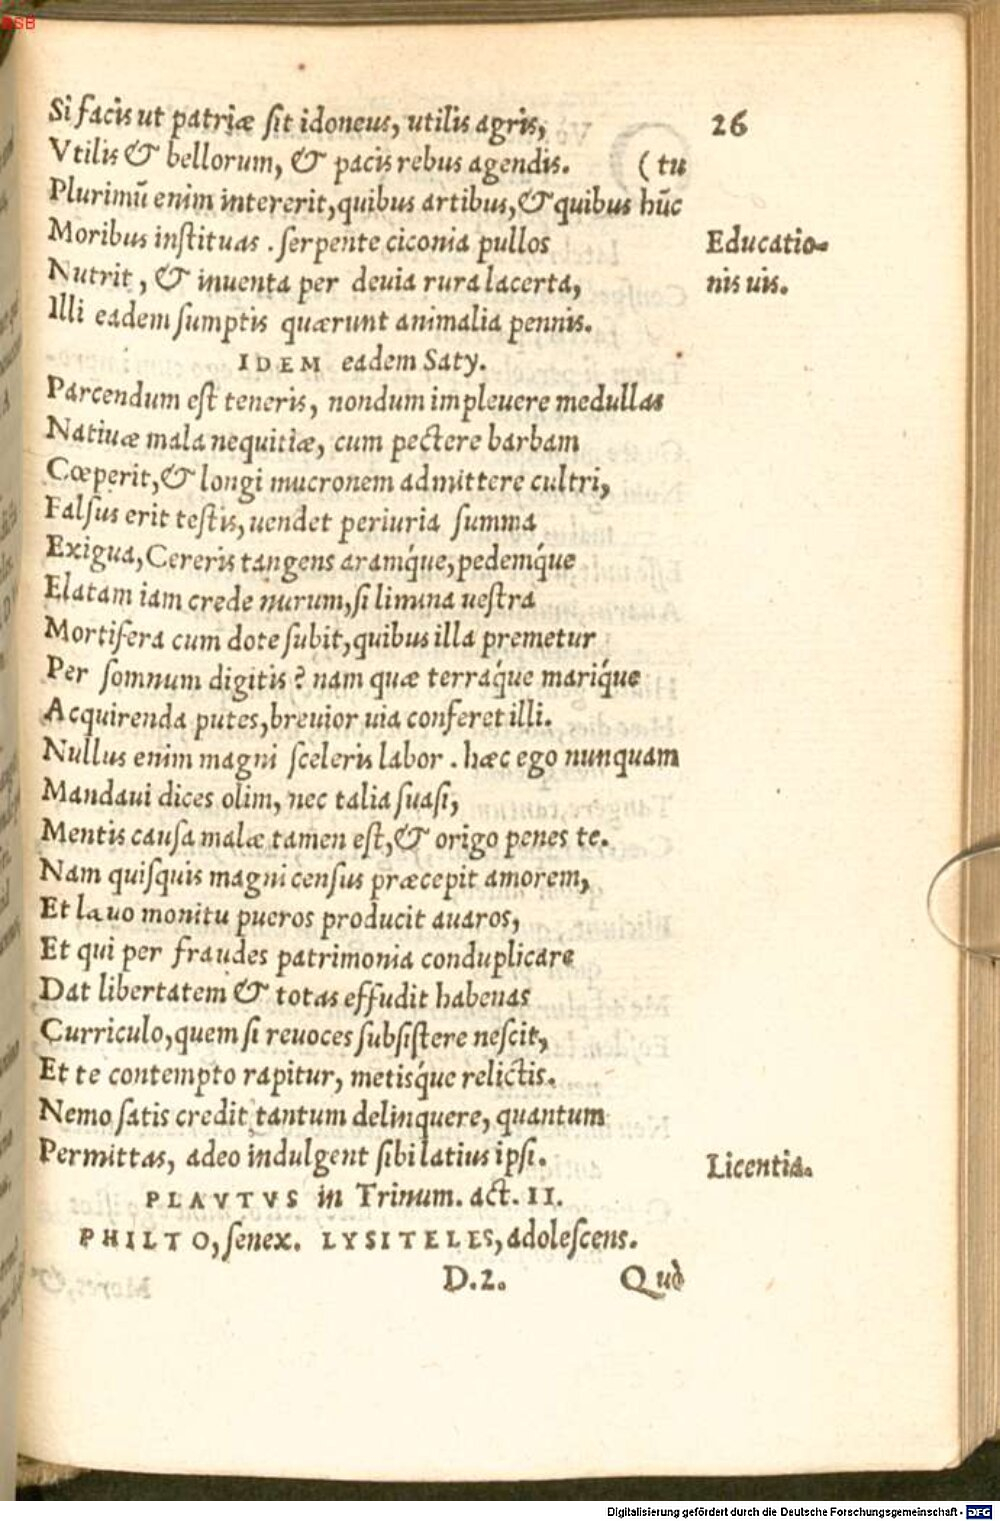 BSB
Si facis ut patriæ sit idoneus, utilis agris, 26
Vtilis & bellorum, & pacis rebus agendis. (tu
Plurimū enim intererit, quibus artibus, & quibus hūc
Moribus instituas. serpente ciconia pullos Educatio-
Nutrit, & inuenta per deuia rura lacerta, nis uis.
Illi eadem sumptis quærunt animalia pennis.
IDEM eadem Saty.
Parcendum est teneris, nondum impleuere medullas
Natiuæ mala nequitiæ, cum pectere barbam
Cœperit, & longi mucronem admittere cultri,
Falsus erit testis, uendet periuria summa
Exigua, Cereris tangens aramq́ue, pedemq́ue
Elatam iam crede nurum, si limina uestra
Mortifera cum dote subit, quibus illa premetur
Per somnum digitis? nam quæ terraq́ue mariq́ue
Acquirenda putes, breuior uia conferet illi.
Nullus enim magni sceleris labor. hæc ego nunquam
Mandaui dices olim, nec talia suasi,
Mentis causa malæ tamen est, & origo penes te.
Nam quisquis magni census præcepit amorem,
Et læuo monitu pueros producit auaros,
Et qui per fraudes patrimonia conduplicare
Dat libertatem & totas effudit habenas
Curriculo, quem si reuoces subsistere nescit,
Et te contempto rapitur, metisq́ue relictis.
Nemo satis credit tantum delinquere, quantum
Permittas, adeo indulgent sibi latius ipsi. Licentia.
PLAVTVS in Trinum. act. II.
PHILTO, senex. LYSITELES, adolescens.
D.2. Quò
Digitalisierung gefördert durch die Deutsche Forschungsgemeinschaft - DFG